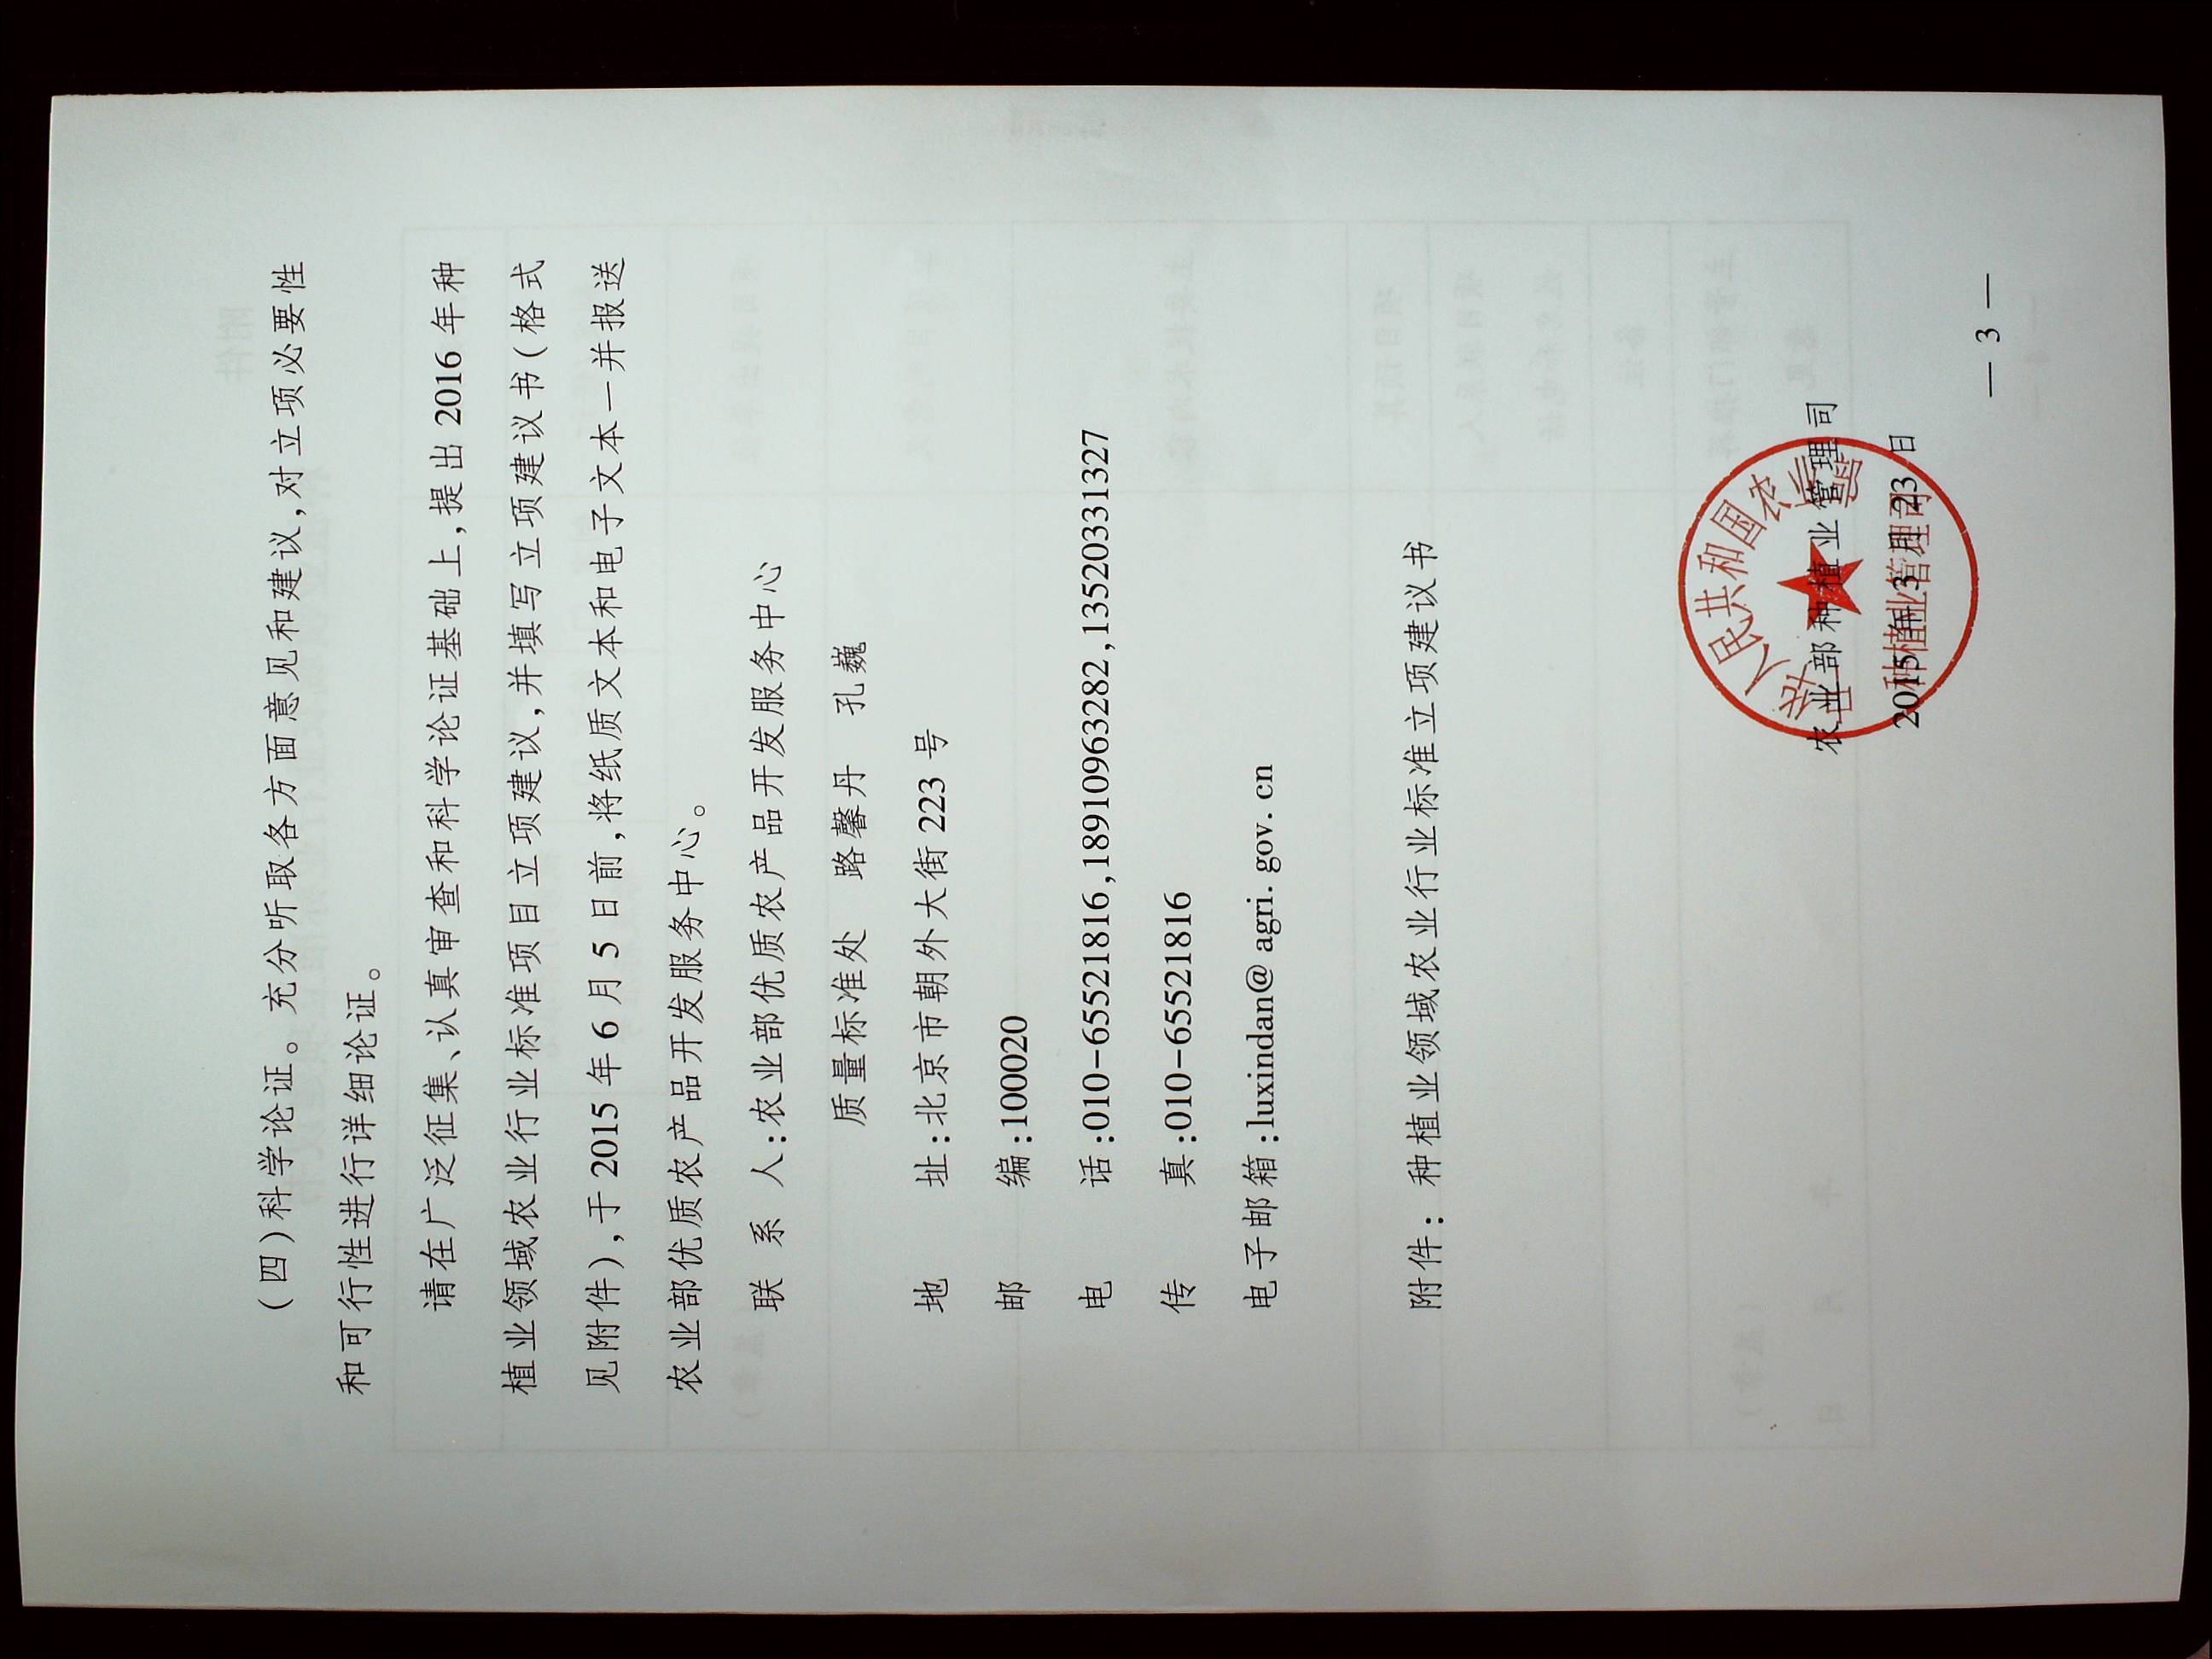 （四）科学论证。充分听取各方面意见和建议，对立项必要性
和可行性进行详细论证。
请在广泛征集、认真审查和科学论证基础上，提出 2016 年种
植业领域农业行业标准项目立项建议，并填写立项建议书（格式
见附件），于 2015 年 6 月 5 日前，将纸质文本和电子文本一并报送
农业部优质农产品开发服务中心。
联 系 人：农业部优质农产品开发服务中心
质量标准处 路馨丹 孔巍
地 址：北京市朝外大街 223 号
邮 编：100020
电 话：010-65521816,18910963282,13520331327
传 真：010-65521816
电子邮箱：luxindan@agri.gov.cn
附件：种植业领域农业行业标准立项建议书
农业部种植业管理司
2015 年 3 月 23 日
中华人民共和国农业部
种植业管理司
— 3 —